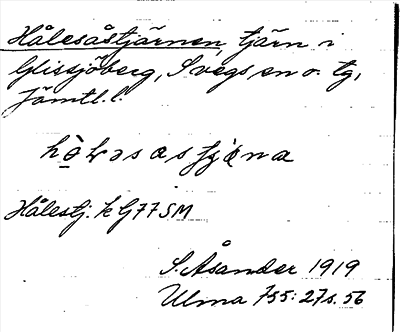 Hålesåstjärnen, tjärn i
Glissjöberg, Svegs, en o. tg,
Jämtl. l.
Hålestj. k G77SM
S. Åsander 1919
Ulma 755: 27 s. 56